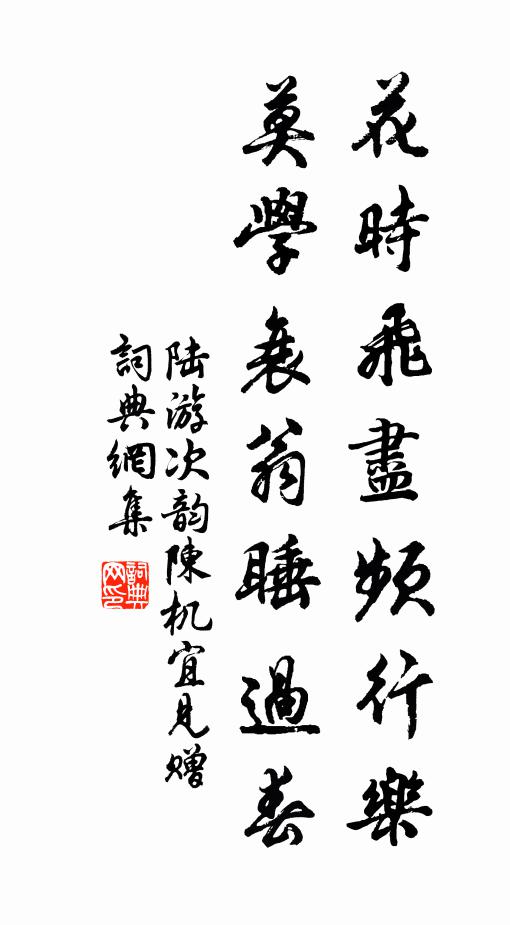 花時飛盡頻行樂
莫學衰翁睡過春
陆游次韵陳机宜見赠
詞典網集
詞典网印